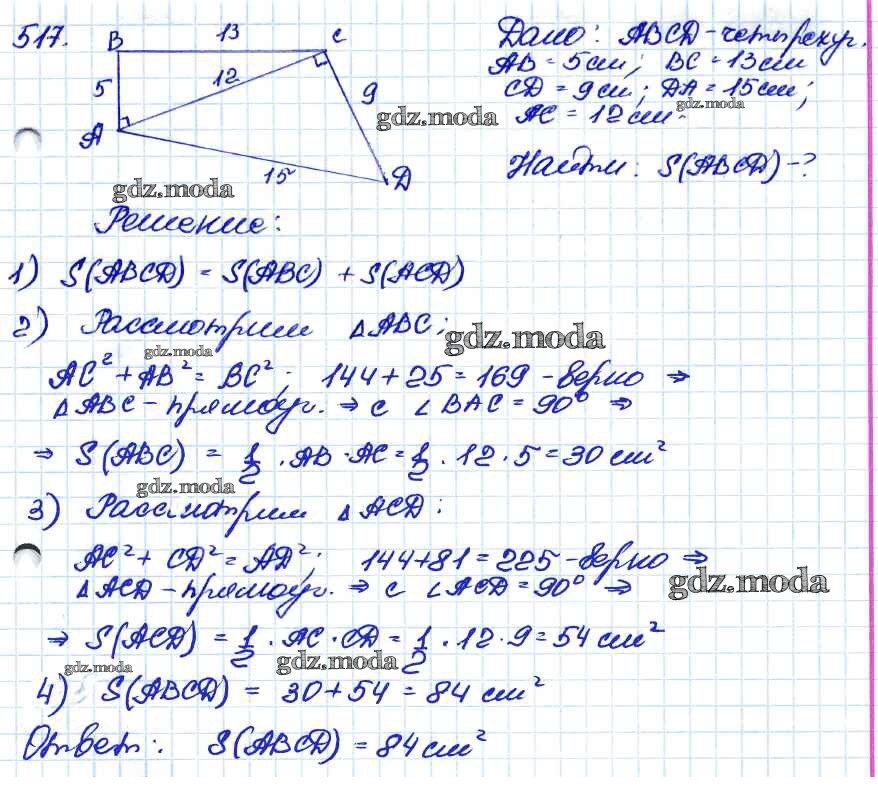 517.
B 13 C
5 12 9
A
15 D
Дано: ABCD - четырехуг.
AB = 5 см; BC = 13 см
CD = 9 см; DA = 15 см;
AC = 12 см.
gdz.moda
gdz.moda
Найти: S(ABCD) - ?
gdz.moda
Решение:
1) S(ABCD) = S(ABC) + S(ACD)
2) Рассмотрим △ABC;
gdz.moda
gdz.moda
AC² + AB² = BC²; 144 + 25 = 169 - верно ⇒
△ABC - прямоуг. ⇒ с ∠BAC = 90° ⇒
⇒ S(ABC) = 1/2 · AB · AC = 1/2 · 12 · 5 = 30 см²
gdz.moda
3) Рассмотрим △ACD:
AC² + CD² = AD²; 144 + 81 = 225 - верно ⇒
△ACD - прямоуг. ⇒ с ∠ACD = 90° ⇒
gdz.moda
⇒ S(ACD) = 1/2 · AC · CD = 1/2 · 12 · 9 = 54 см²
gdz.moda
gdz.moda
4) S(ABCD) = 30 + 54 = 84 см²
Ответ: S(ABCD) = 84 см²